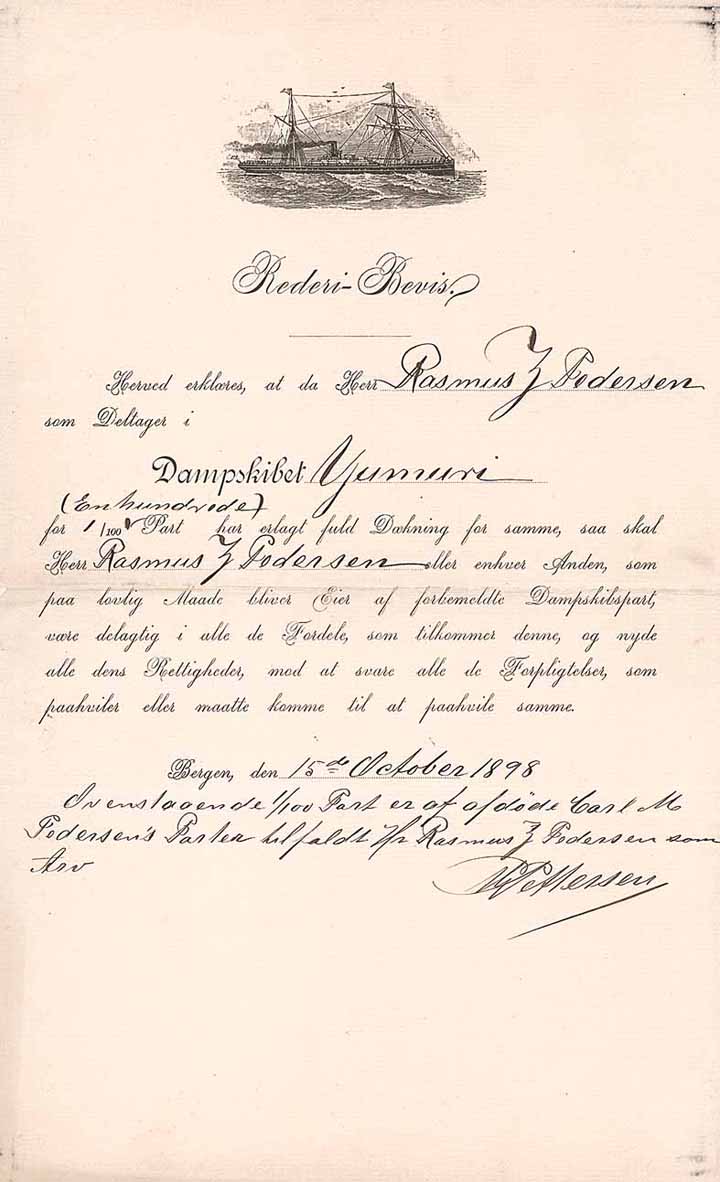 Rederi-Bevis.
Herved erklæres, at da Herr Rasmus Z Pedersen
som Deltager i
Dampskibet Yumuri
(En hundrede)
for 1/100 Part har erlagt fuld Dækning for samme, saa skal
Herr Rasmus Z Pedersen eller enhver Anden, som
paa lovlig Maade bliver Eier af forbemeldte Dampskibspart,
være delagtig i alle de Fordele, som tilkommer denne, og nyde
alle dens Rettigheder, mod at svare alle de Forpligtelser, som
paahviler eller maatte komme til at paahvile samme.
Bergen, den 15de October 1898
Ovenstaaende 1/100 Part er af afdøde Carl M
Pedersen's Parter tilfaldt Hr Rasmus Z Pedersen som
Arv
Pettersen